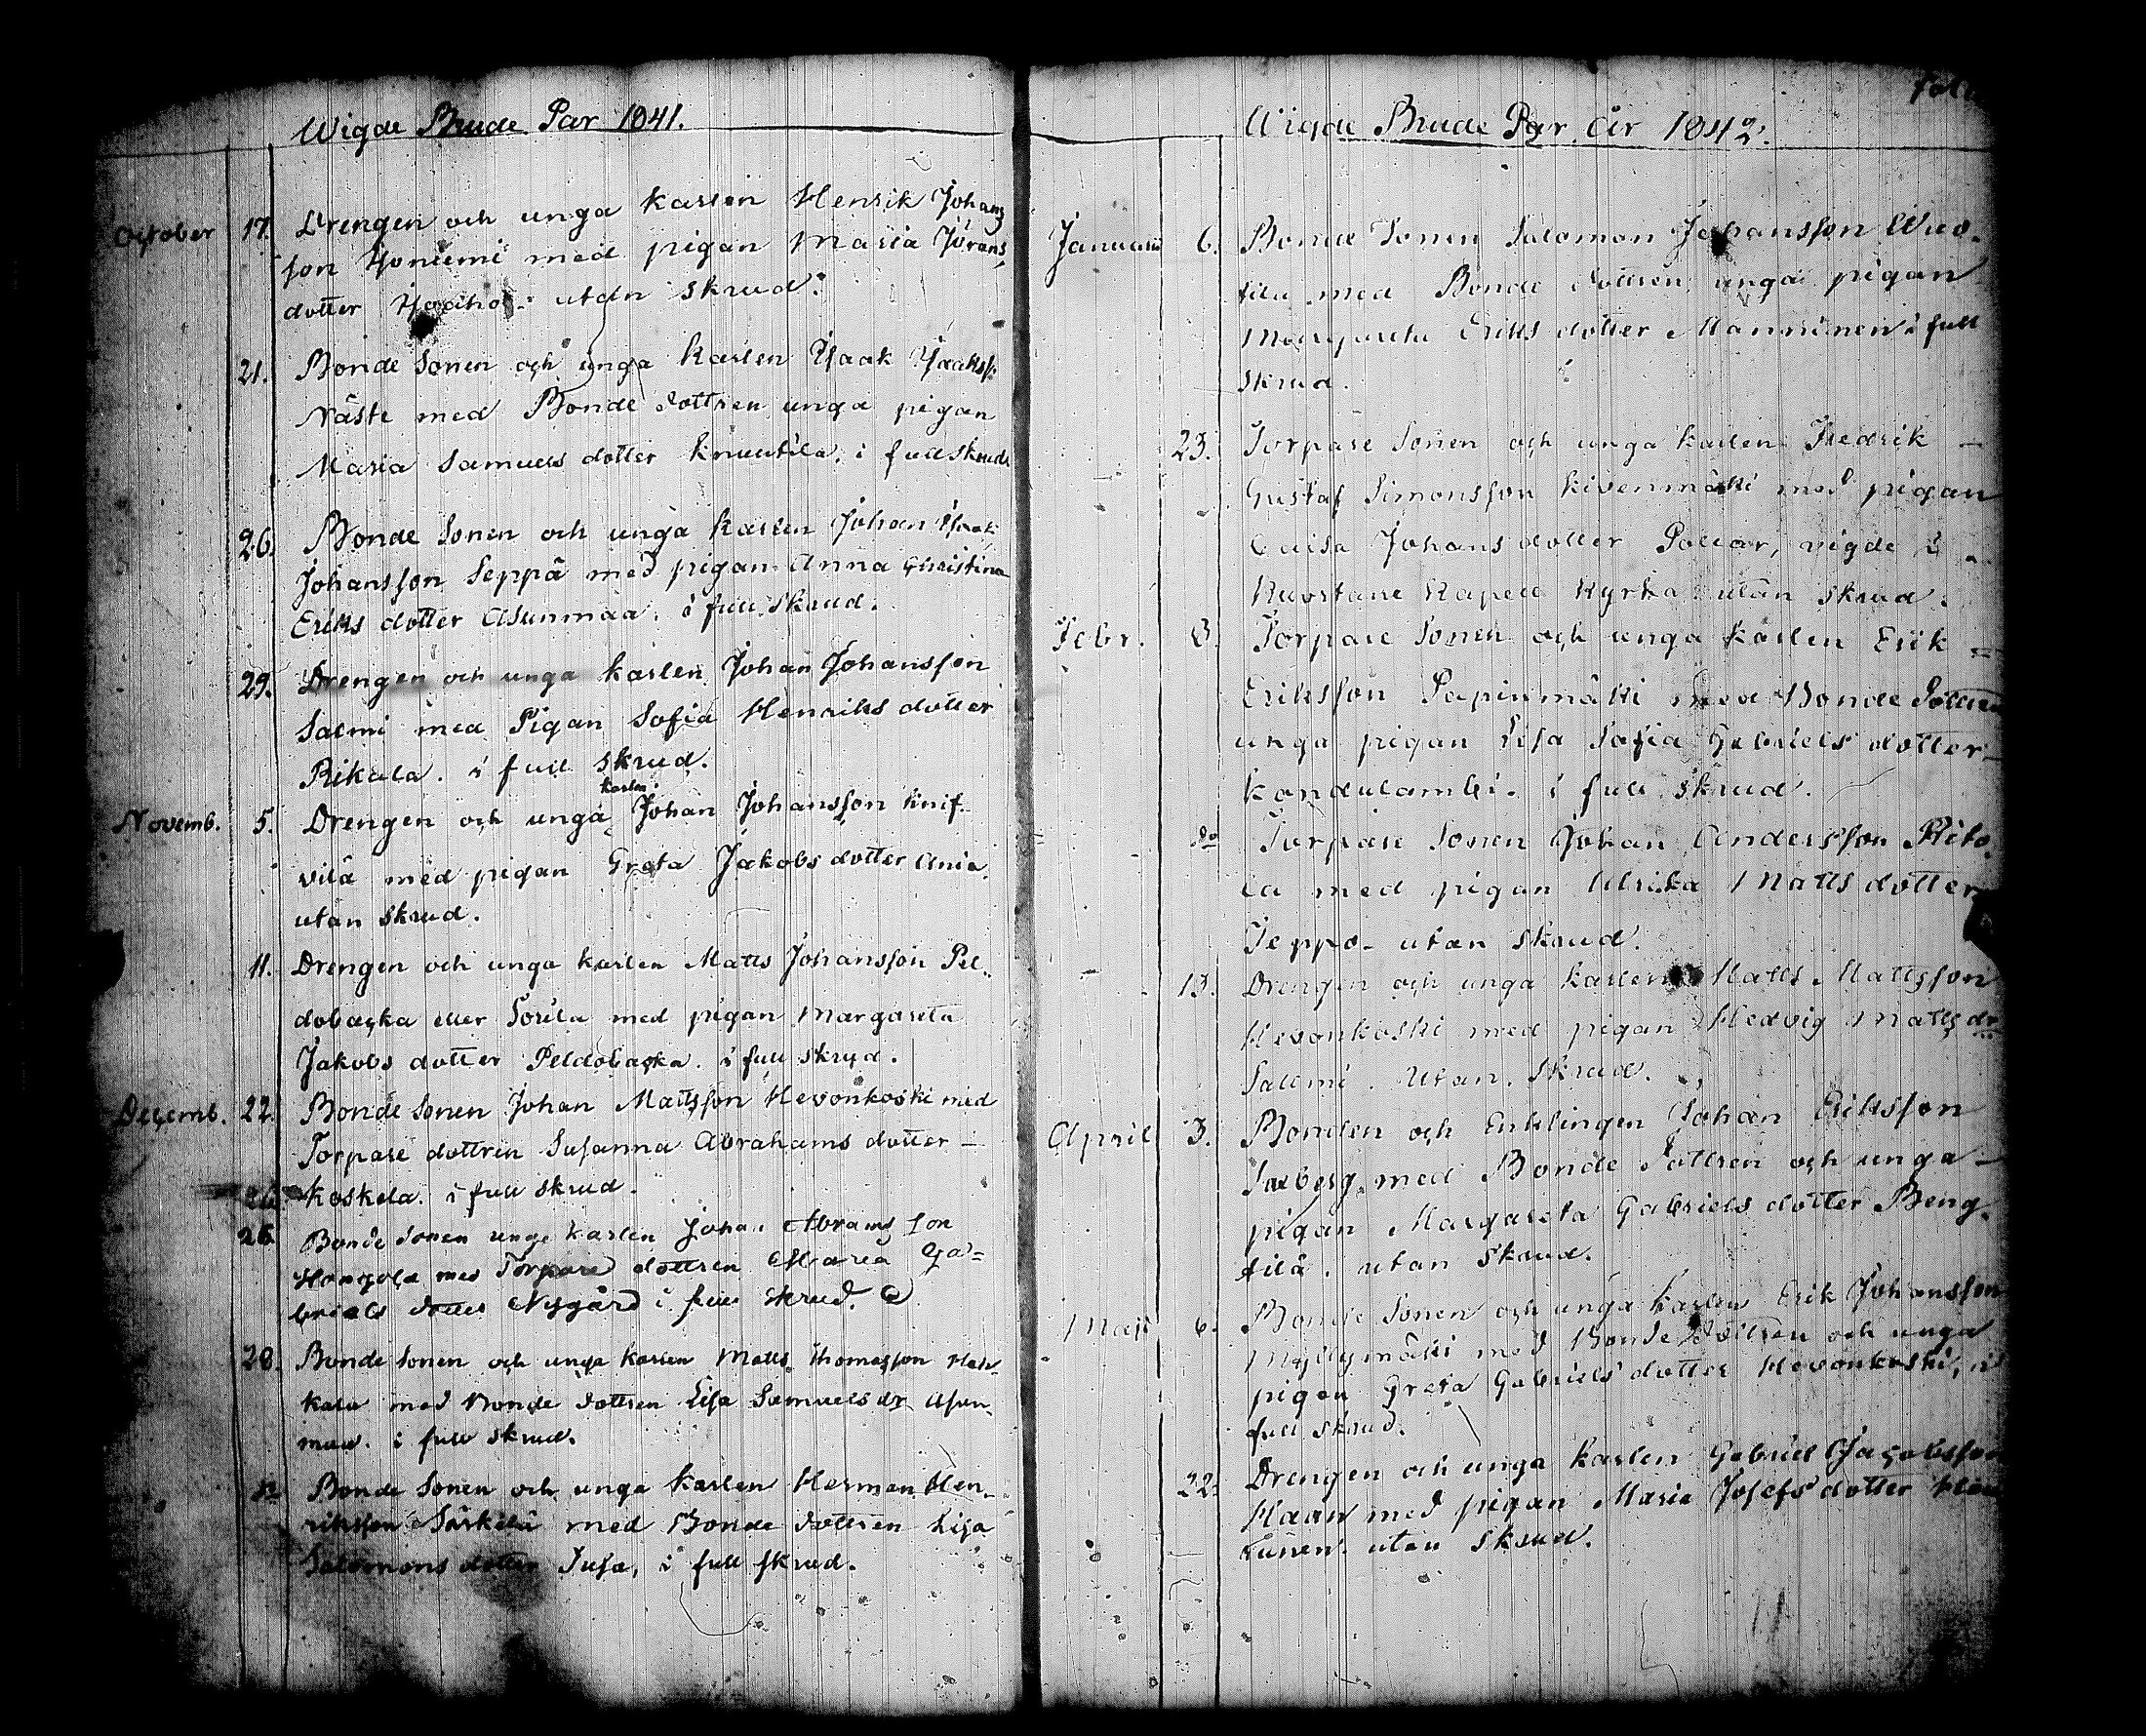 Wigde Brude Par 1841.
October 17. Drengen och unga Karlen Henrik Johans
son Yoniemi med pigan Maria Jörans
dotter utan skrud.
21. Bonde Sonen och unga Karlen Isaak Isakss.
Näste med Bonde dottren unga pigan
Maria Samuels dotter Knuutila, i full skrud
26. Bonde Sonen och unga Karlen Johan Isaak
Johansson Seppä med pigan Anna Christina
Eriks dotter Asunmaa. i full skrud.
29. Drengen och unga Karlen Johan Johansson
Salmi med Pigan Sofia Henriks dotter
Rikala. i full skrud.
karlen
Novemb. 5. Drengen och unga Johan Johansson Knif-
vilä med pigan Greta Jakobs dotter Ania.
utan skrud.
11. Drengen och unga karlen Matts Johansson Pel-
dobacka eller Sorila med pigan Margareta
Jakobs dotter Peldobacka. i full skrud.
Decemb. 22. Bonde Sonen Johan Mattsson Hevonkoski med
Torpare dottren Susanna Abrahams dotter –
26. Koskela. i full skrud.
26. Bonde Sonen unge karlen Johan Abrams son
med Torpare dottren Maria Ga=
briels dotter Nygård i full skrud.
28. Bonde Sonen och unga Karlen Matts Thomasson
kala med Bonde dottren Lisa Samuels dr Asun-
maa. i full skrud.
Bonde Sonen och unga Karlen Herman Hen-
riksson Särkelä med Bonde dottren Lisa
Salomons dotter Jusa, i full skrud.
Wigde Brude Par År 1842.
Januari 6. Bonde Sonen Salomon Johansson Wuo-
tila med Bonde dottren unga pigan
Margareta Eriks dotter Manninen i full
skrud.
23. Torpare Sonen och unga karlen Fredrik –
Gustaf Simonsson Kivenmäki med pigan
Caisa Johans dotter vigde i
Kuortane Kapell Kyrka utan skrud.
Febr. 8. Torpare Sonen och unga karlen Erik –
Eriksson Papinmäki med Bonde Dottren
unga pigan Lisa Sofia Gabriels dotter –
Kandulambi. i full skrud.
do Torpare Sonen Johan Andersson Rito-
la med pigan Ulrika Matts dotter
Seppo- utan skrud.
13. Drengen och unga karlen Matts Mattsson
Hevonkoski med pigan Hedvig Matts dr
Salmi. Utan skrud.
April 3. Bonden och Enklingen Johan Eriksson
med Bonde Dottren och unga –
pigan Margareta Gabriels dotter Beng-
tilä. utan skrud.
Maji 6. Bonde Sonen och unga karlen Erik Johansson
Myllymäki med Bonde Dottren och unga
pigan Greta Gabriels dotter Hevonkoski, i
full skrud.
22. Drengen och unga karlen Gabriel Jacobsson
Haan med pigan Maria Josefs dotter
utan skrud.